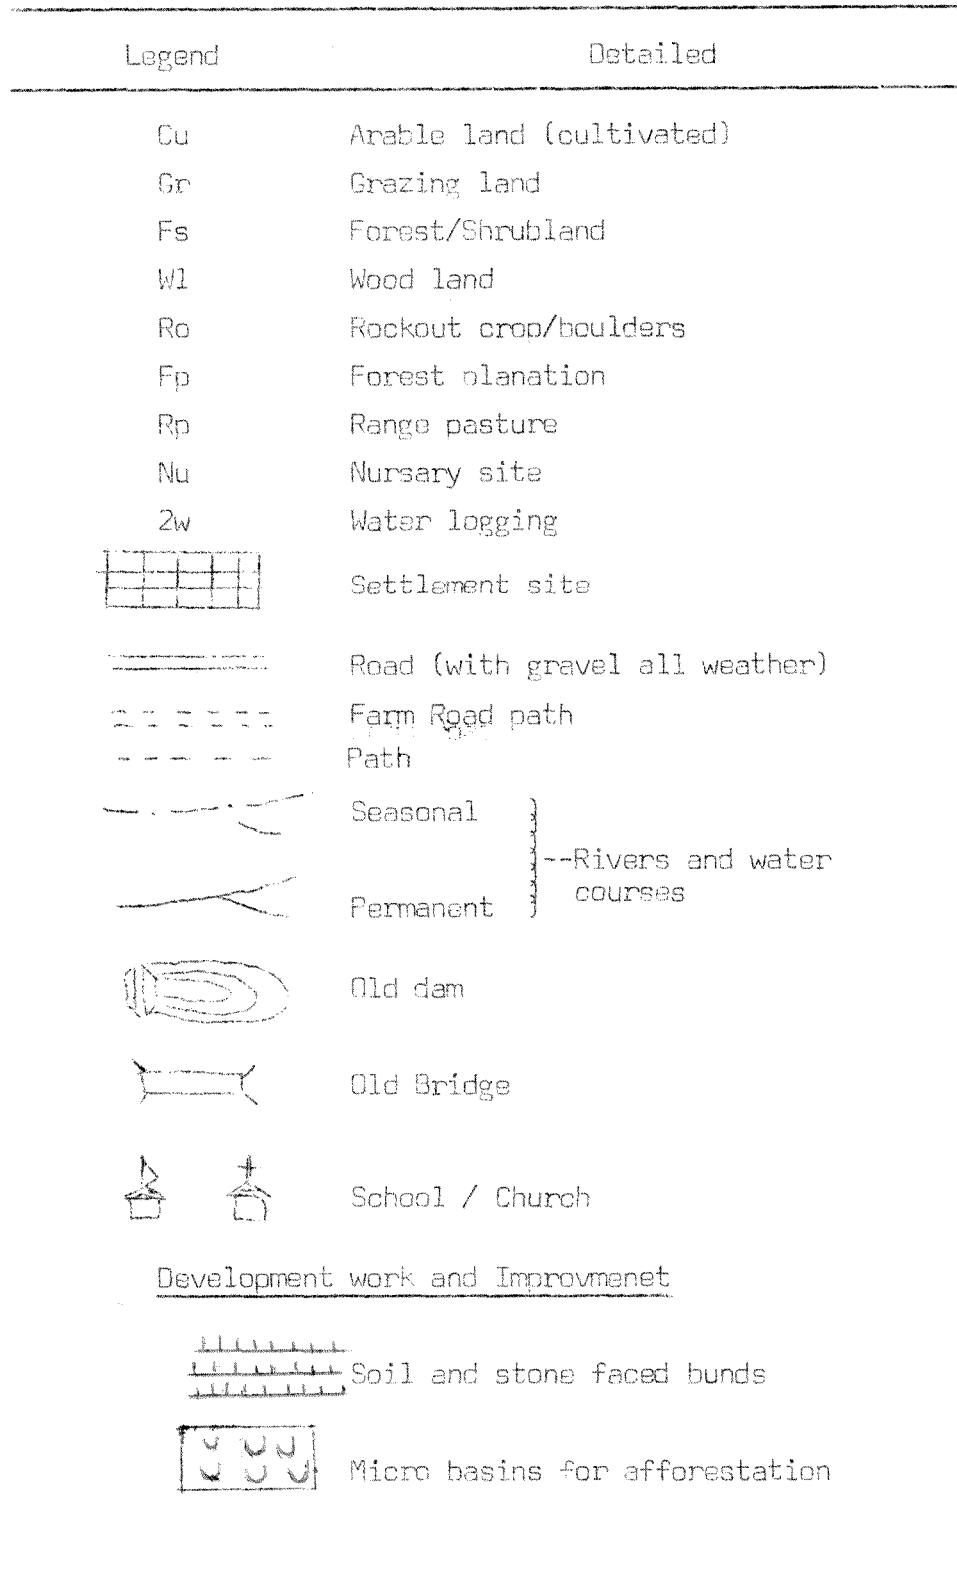 Legend Detailed
Cu Arable land (cultivated)
Gr Grazing land
Fs Forest/Shrubland
Wl Wood land
Ro Rockout crop/boulders
Fp Forest planation
Rp Range pasture
Nu Nursary site
2w Water logging
Settlement site
Road (with gravel all weather)
Farm Road path
Path
Seasonal
--Rivers and water
courses
Permanent
Old dam
Old Bridge
School / Church
Development work and Improvmenet
Soil and stone faced bunds
Micro basins for afforestation